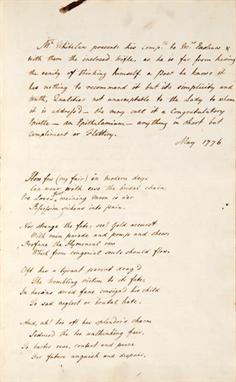 Mr Whitelaw presents his Compts to Mrs &
with them the inclosed trifle, as he is far from having
the vanity of thinking himself a Poet he knows it
has nothing to recommend it but its simplicity and
truth, flatters not unacceptable to the Lady to whom
it is address'd – she may call it a Congratulatory
Epistle – an Epithalamium – anything in short but
compliment or Flattery.
May 1776
How few (my fair) in modern days
Can ever with ease the bridal chain;
Ere Love's meaning morn is o'er
Nor strange the fate, see! Gold accurst
With vain parade and pomp and shew
Profane the Hymeneal vow
Which from congenial souls should flow.
Oft has a tyrant parent drag'd
The trembling victim to its fate,
In hoarded dread fane consign'd his child
To sad neglect or brutal hate.
And, ah! too oft has splendor's charm
Seduced the too unthinking fair,
To barter ease, content and peace
For future anguish and despair.